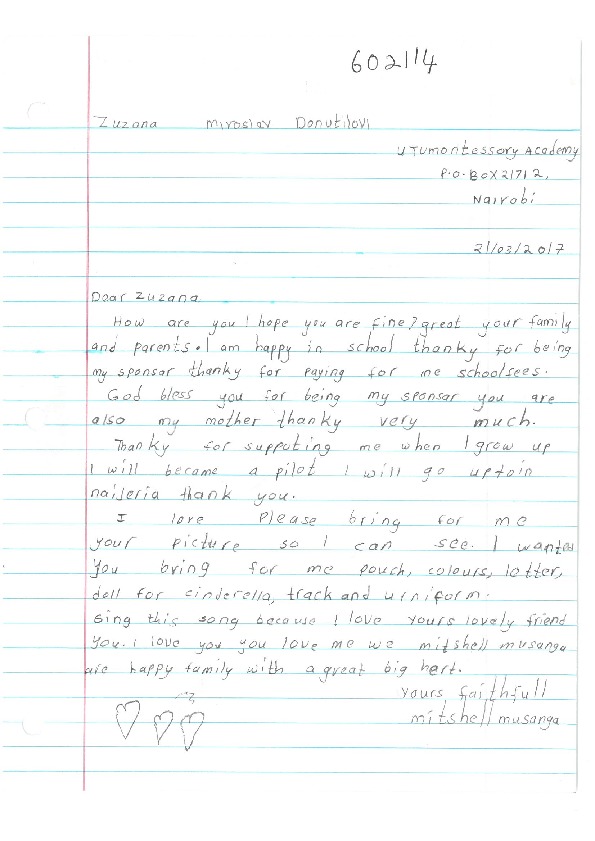 602114
Zuzana Miroslav Donutilovi
UTUmontessory Academy
P.O.BOX 21712,
Nairobi
21/03/2017
Dear Zuzana
How are you I hope you are fine? great your family
and parents. I am happy in school thanky for being
my sponsar thanky for paying for me schoolsees.
God bless you for being my sponsar you are
also my mother thanky very much.
Thanky for suppoting me when I grow up
I will became a pilot I will go uptoin
naijeria thank you.
I love Please bring for me
your picture so I can see. I wanted
You bring for me pouch, colours, lotter,
doll for cinderella, track and uiniform.
Sing this song because I love yours lovely friend
You. I love you you love me we mitshell musanga
are happy family with a great big hert.
Yours faithfull
mitshell musanga